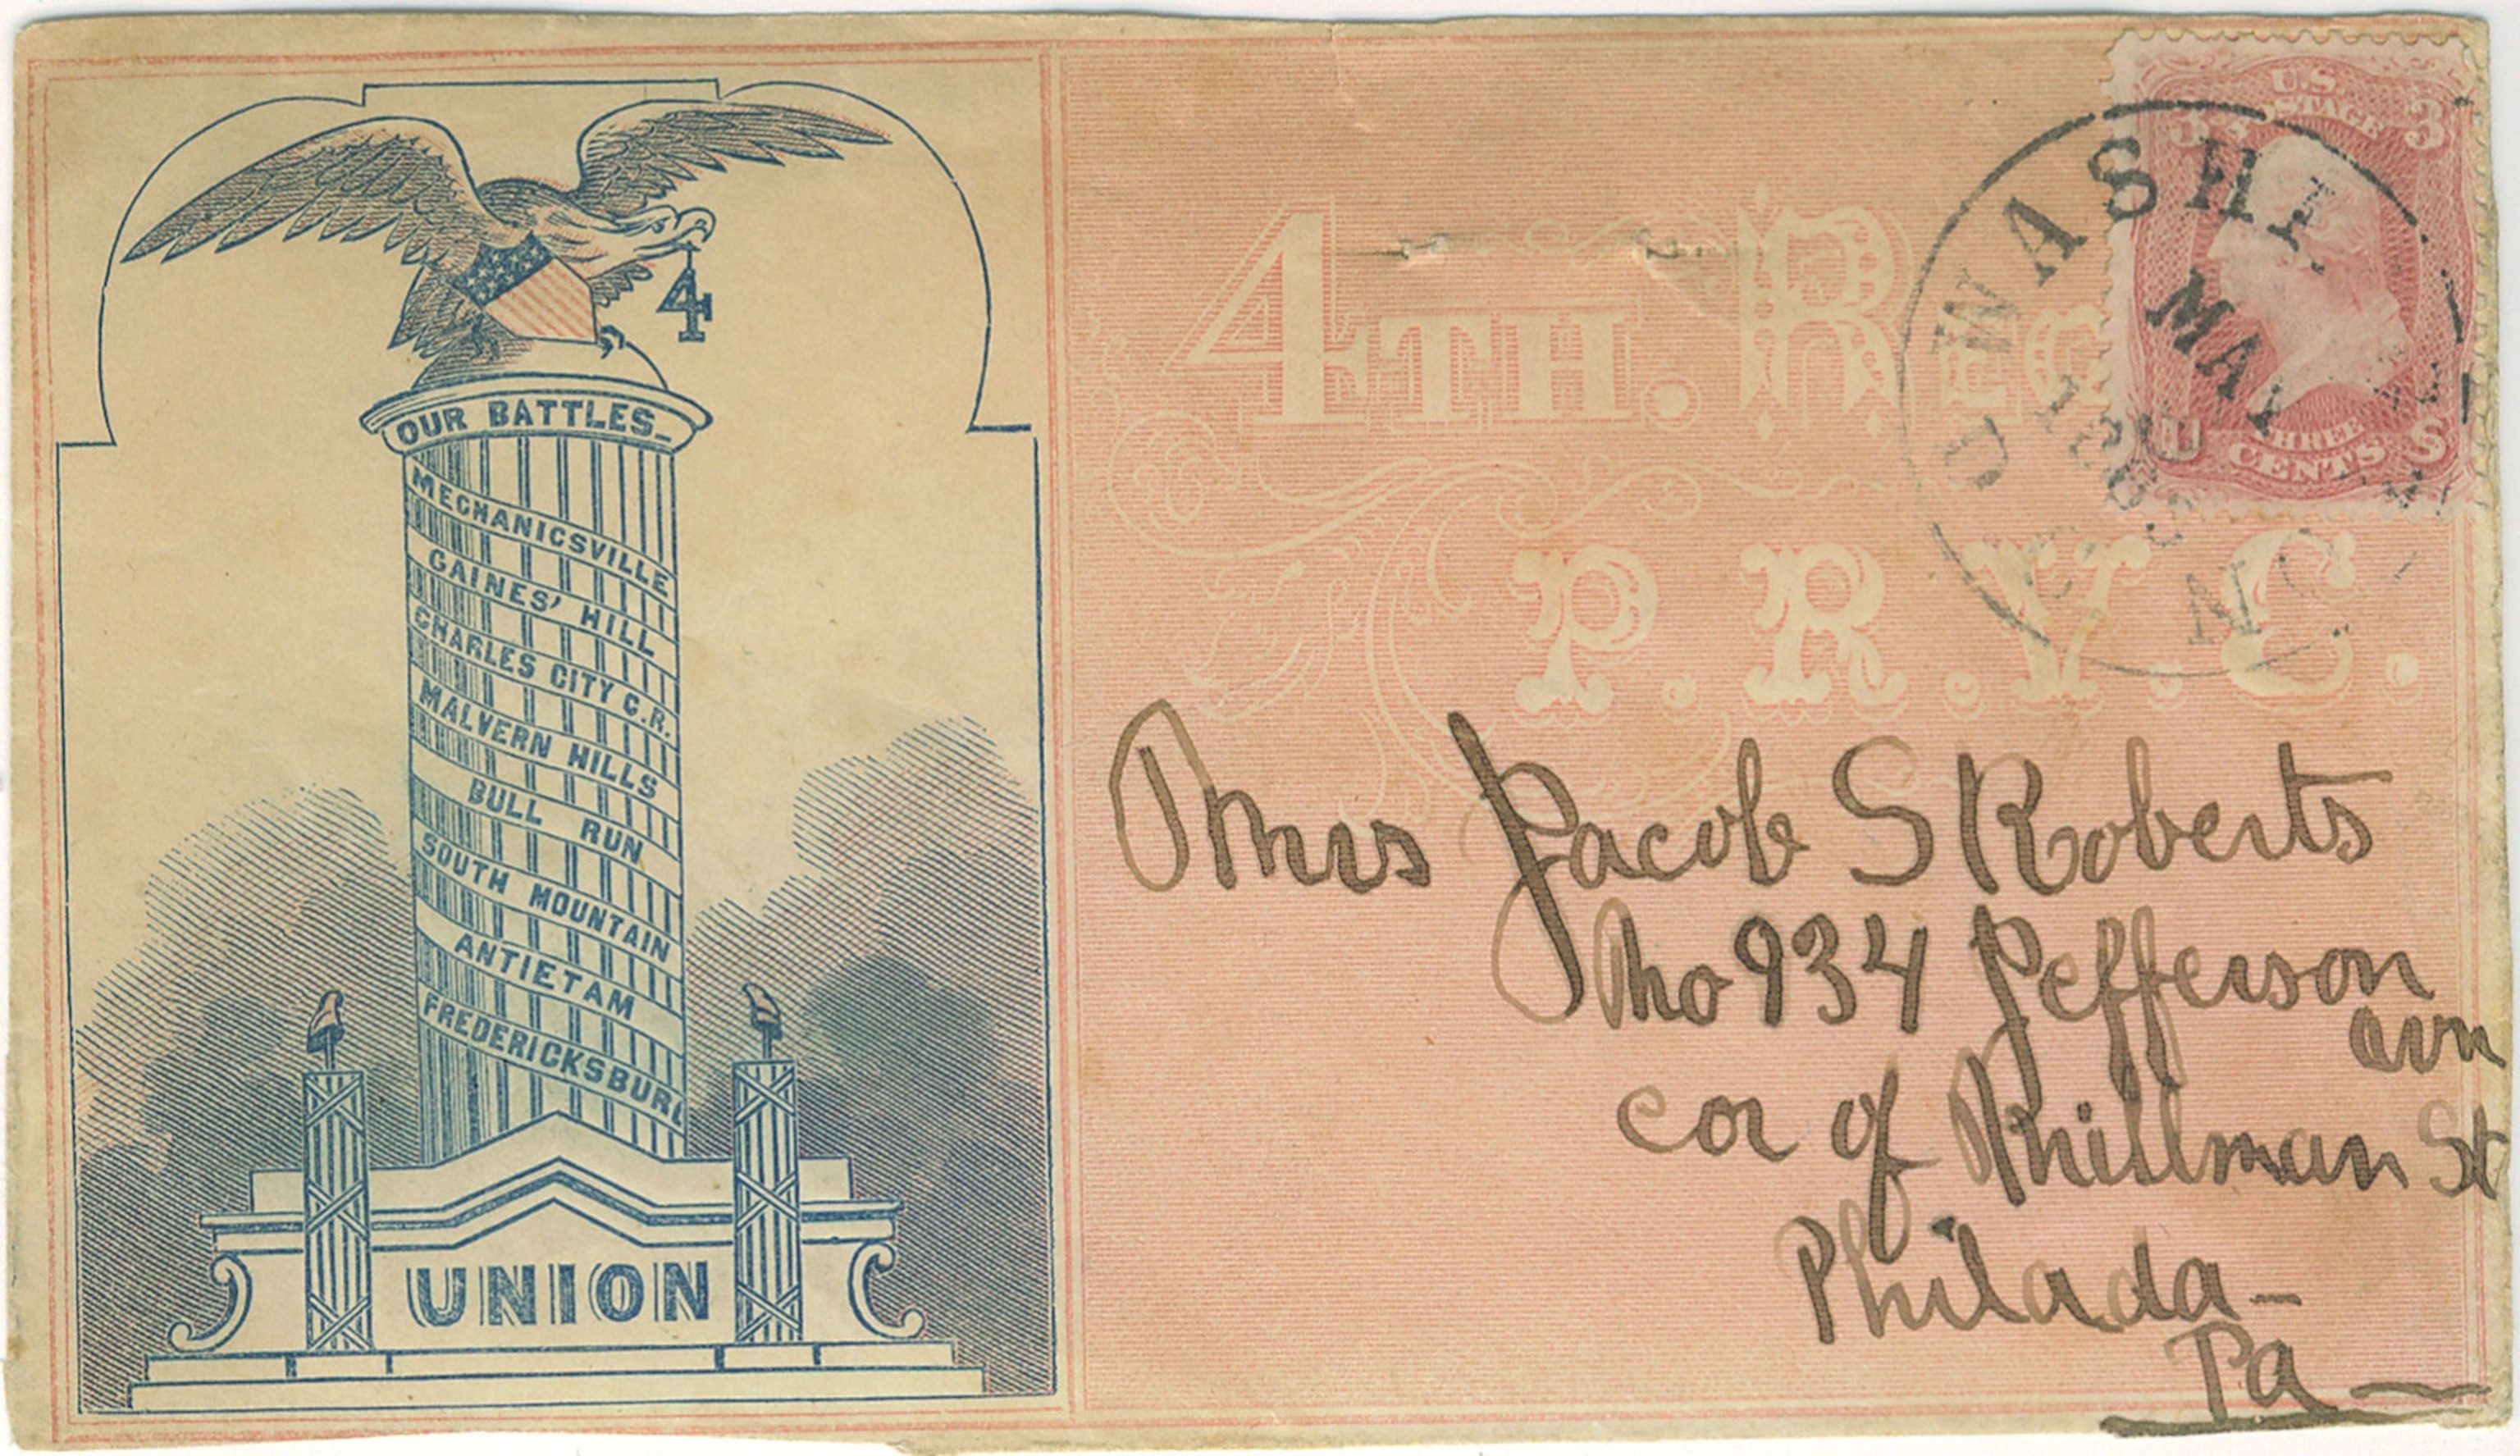 4
OUR BATTLES
MECHANICSVILLE
GAINES' HILL
CHARLES CITY C.R.
MALVERN HILLS
BULL RUN
SOUTH MOUNTAIN
ANTIETAM
FREDERICKSBURG
UNION
4TH. REG
P.R.V.C.
U.S.
POSTAGE
3 3
U S
THREE
CENTS
WASHINGTON
MAY
Mrs Jacob S Roberts
No 934 Jefferson
avn
cor of Phillman St
Philada-
Pa